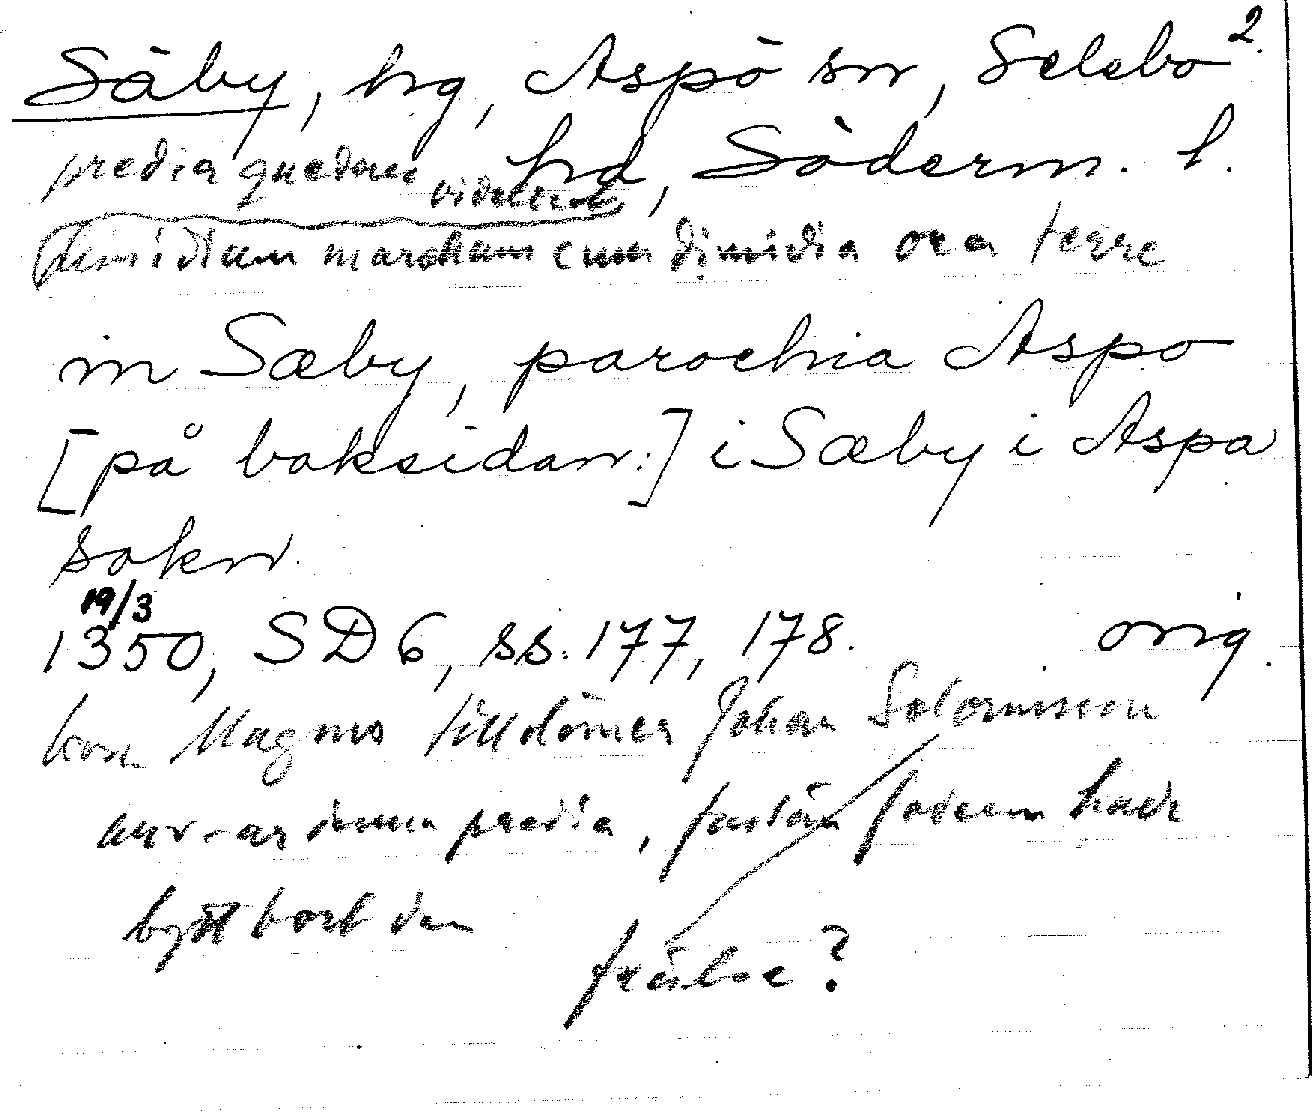 Säby, hg, Aspö sn, Selebo 2.
hd, Söderm. l.
predia quedam videlicet
dimidium marcham cum dimidia ora terre
in Sæby, parochia Aspo
[på baksidan:] i Sæby i Aspa
sokn.
19/3
1350, SD 6, ss. 177, 178. orig.
kon Magnus tilldömer Johan Salomnsson
arv-ar denna predia, fastän fadern hade
bytt bort den
frälse?